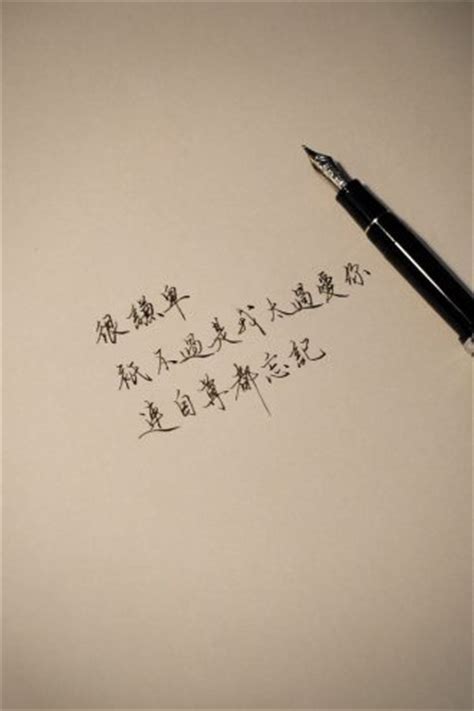 很謙卑
祇不過是我太過愛你
連自尊都忘記